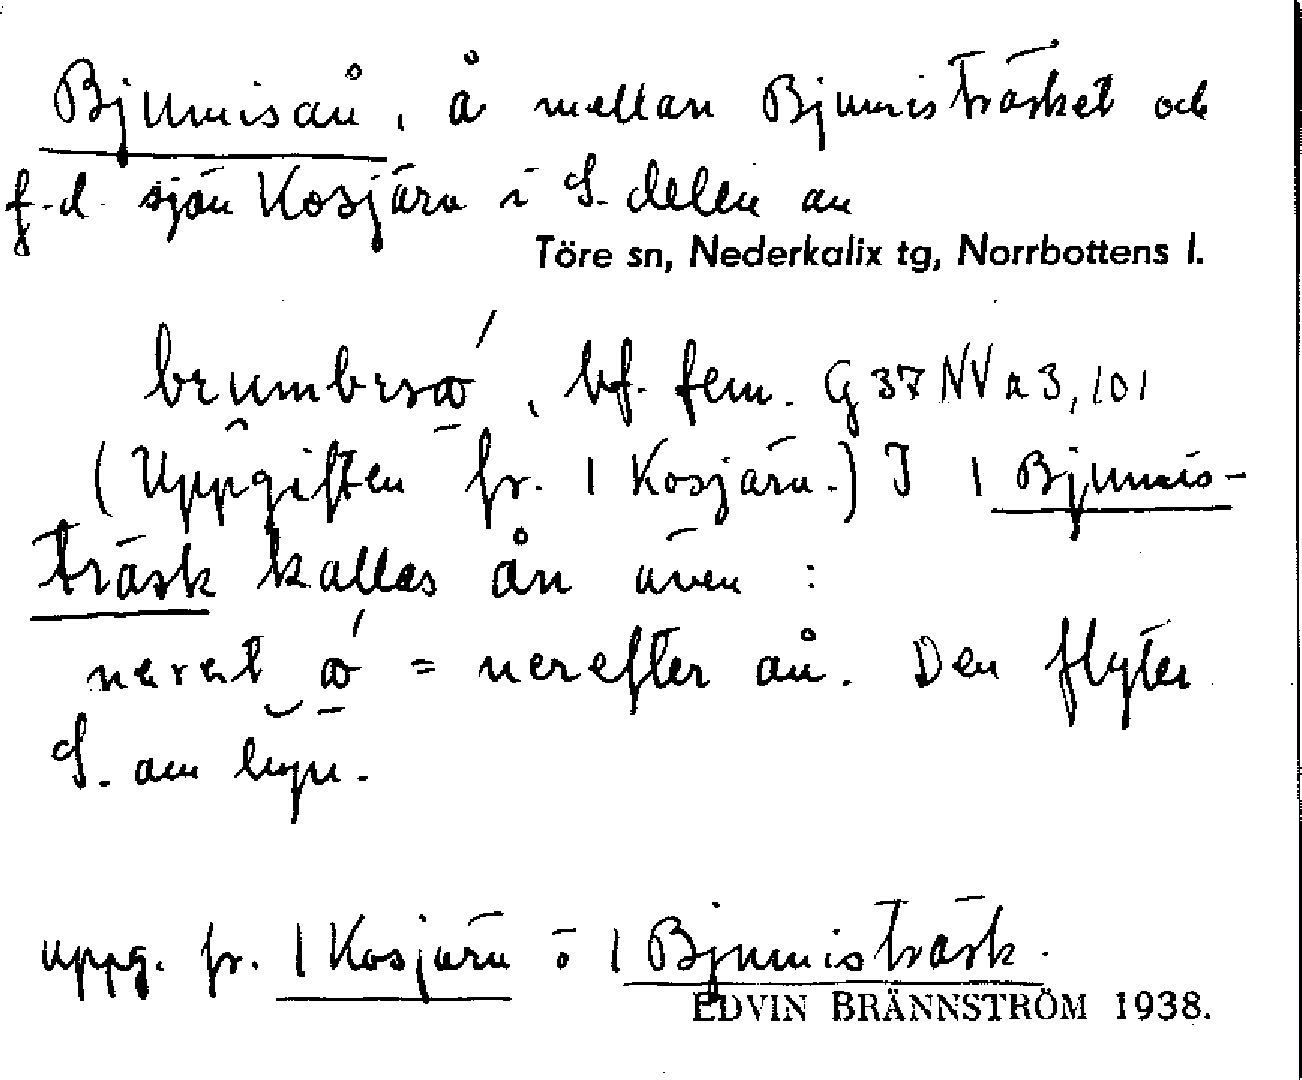 Bjumisån, å mellan Bjumisträsket och
f.d. sjön Kosjärv i S. delen av
Töre sn, Nederkalix tg, Norrbottens l.
bf. fem. G 37 NV a 3, 101
(Uppgiften fr. 1 Kosjärv.) I 1 Bjumis-
träsk kallas ån även :
= nerefter ån. Den flyter
S. om byn.
uppg. fr. 1 Kosjärv o 1 Bjumisträsk.
EDVIN BRÄNNSTRÖM 1938.